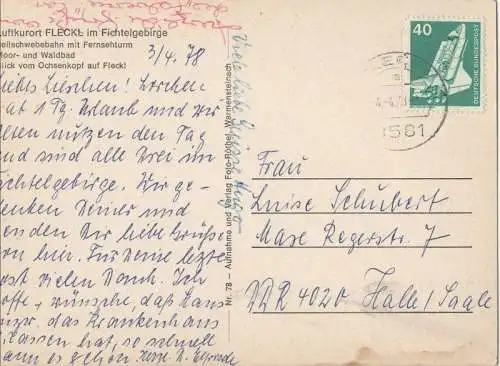 Luftkurort FLECKL im Fichtelgebirge
Seilschwebebahn mit Fernsehturm
Moor- und Waldbad
Blick vom Ochsenkopf auf Fleckl
3/4. 78
Liebes Lieschen! Lorchen
hat 1 Tg. Urlaub und wir
wollten nutzen den Tag
und sind alle Drei im
Fichtelgebirge. Wir ge-
denken Deiner und
senden Dir liebe Grüße
Für Deine letzte
Post vielen Dank. Ich
hoffe + wünsche, daß Hans
inzw. das Krankenhaus
verlassen hat, so schnell
kann es gehen. Herzl.
Viele liebe Grüße
Nr. 78 – Aufnahme und Verlag Foto-Röthel, Warmensteinach
40
DEUTSCHE BUNDESPOST
8581
Frau
Luise Schubert
Max Regerstr. 7
DDR 4020 Halle/Saale